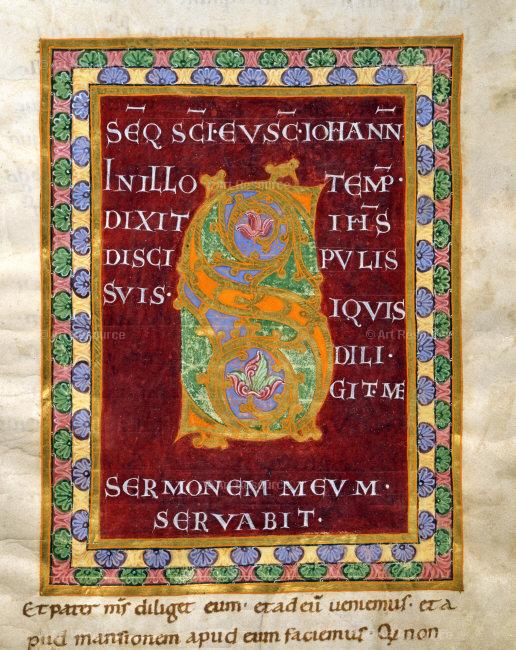 SEQ̄ SC̄I EVSC̄· IOHANN̄·
IN ILLO TEMP̄·
DIXIT IH̄S
DISCI PVLIS
SVIS· S IQVIS
DILI·
GIT ME
SERMONEM MEVM·
SERVABIT·
Et pater m̄s diliget eum· et ad eū veniemus· et a
pud mansionem apud eum faciemus· Qui non